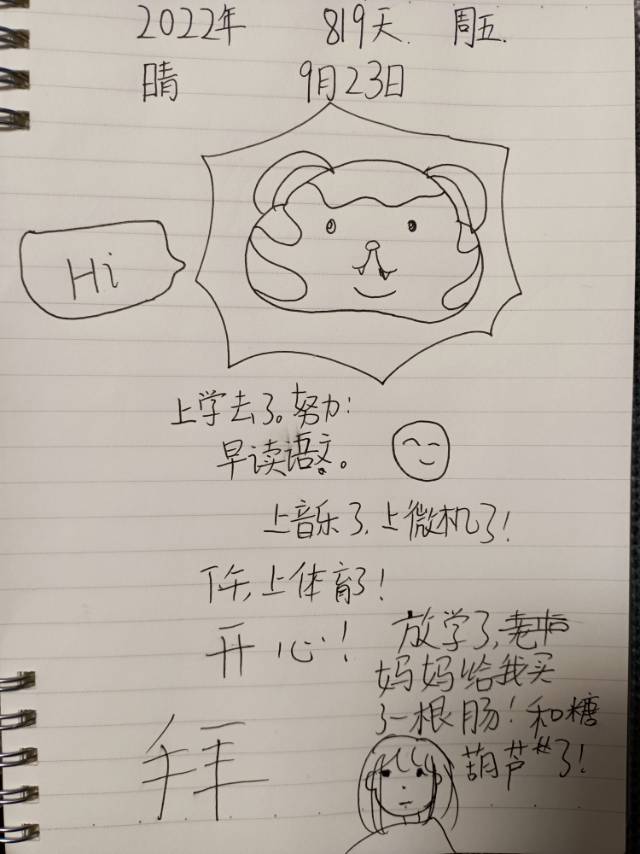 2022年 819天. 周五.
晴 9月23日
Hi
上学去了。努力:
早读语文。
上音乐了,上微机了!
下午,上体育了!
开心!
放学了,
妈妈给我买
了一根肠!和糖
葫芦 了!
拜